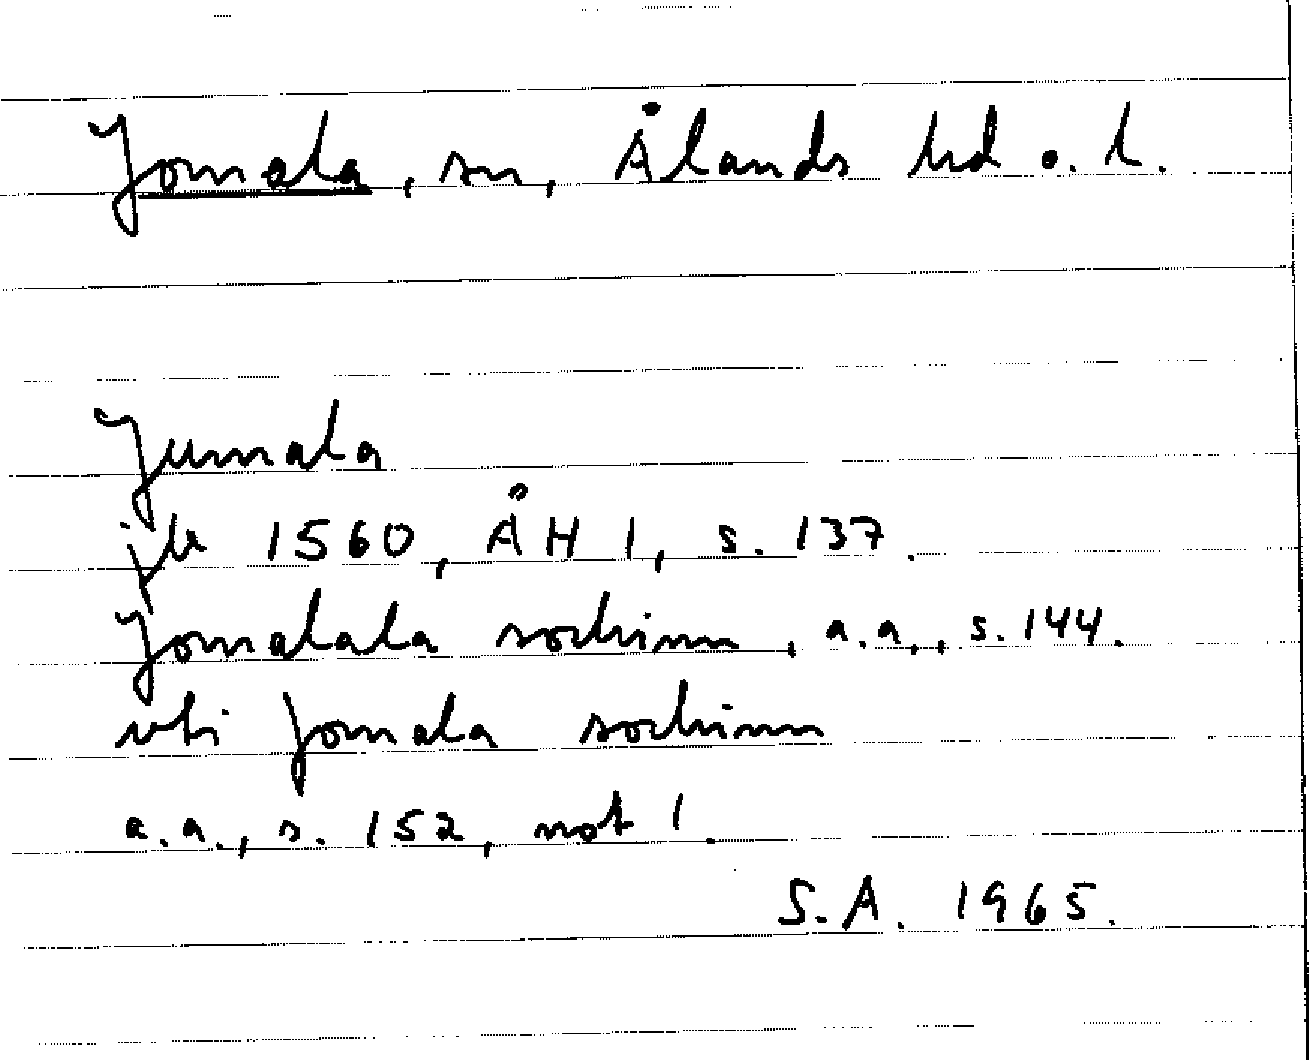 Jomala, sn, Ålands hd o. l.
Jumala
jb 1560, ÅH 1, s. 137.
Jomalala sochinn, a.a., s. 144.
vti Jomala sochinn
a.a., s. 152, not 1.
S.A. 1965.